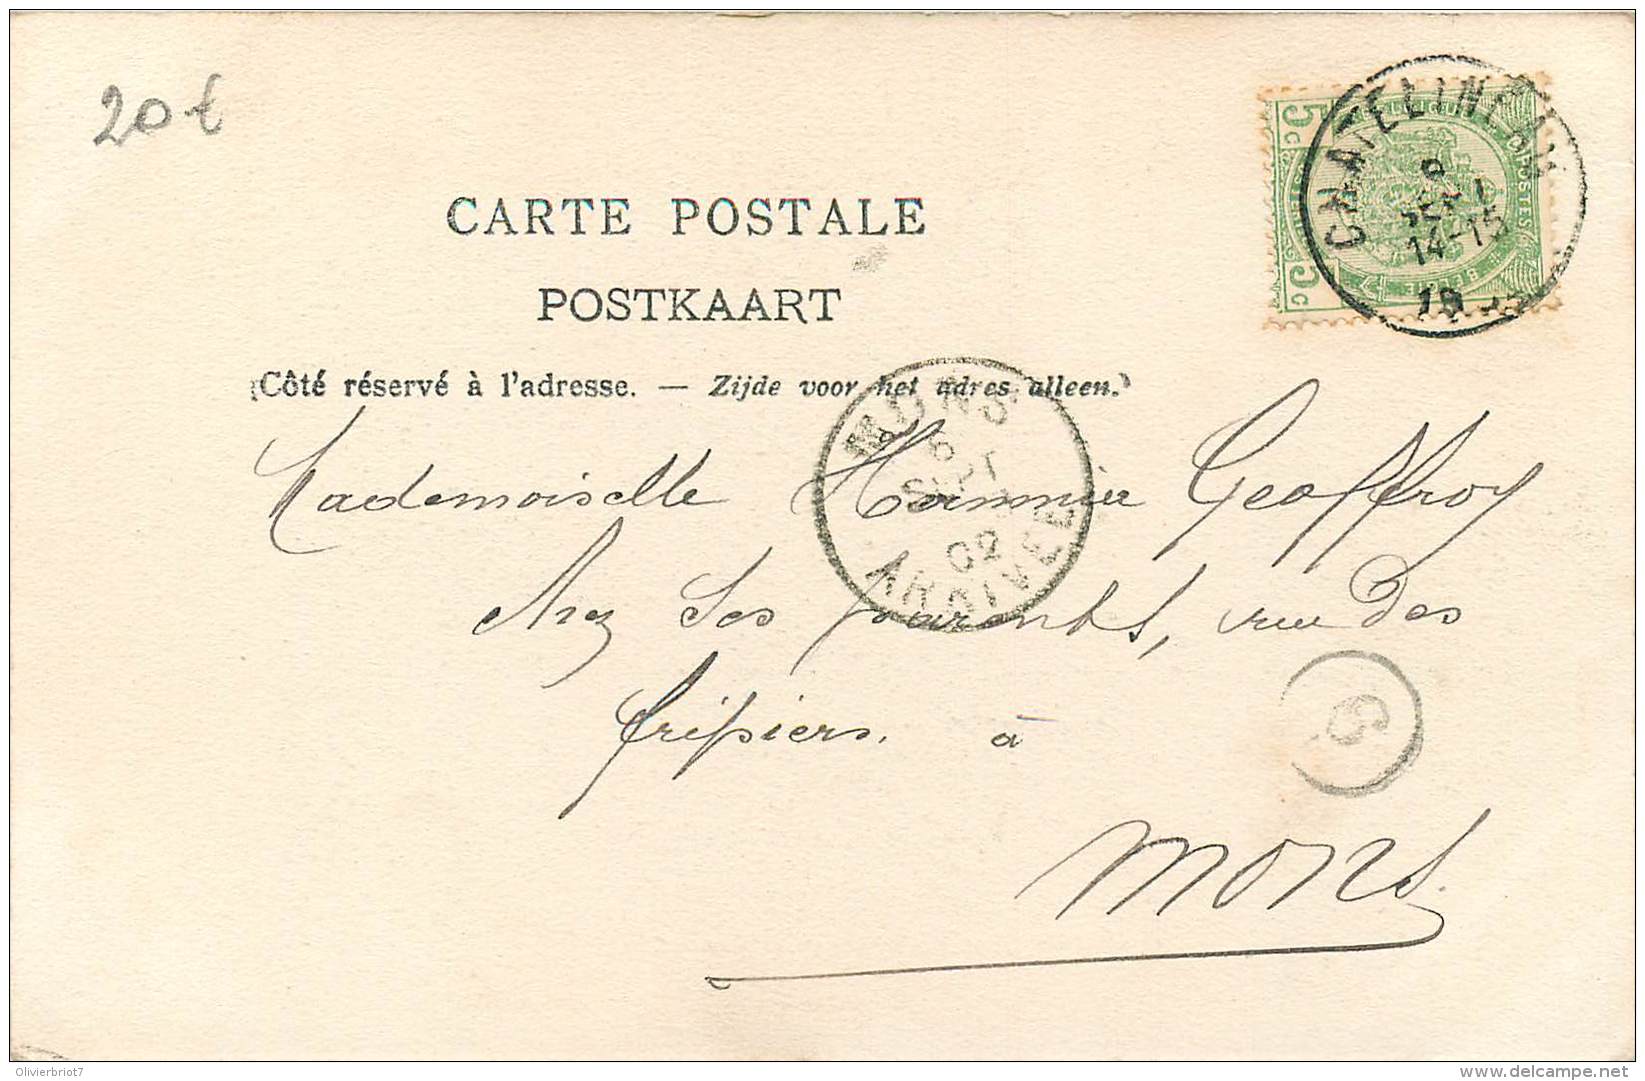 20 €
CHATELINEAU
8
SEPT
14-15
5c
POSTES
5c
CARTE POSTALE
POSTKAART
(Côté réservé à l'adresse. — Zijde voor het adres alleen.)
MONS
SEPT
02
ARRIVÉE
Mademoiselle Geoffroy
chez ses parents, rue des
fripiers. à
G
Mons.
Olivierbriot7
delcampe.net